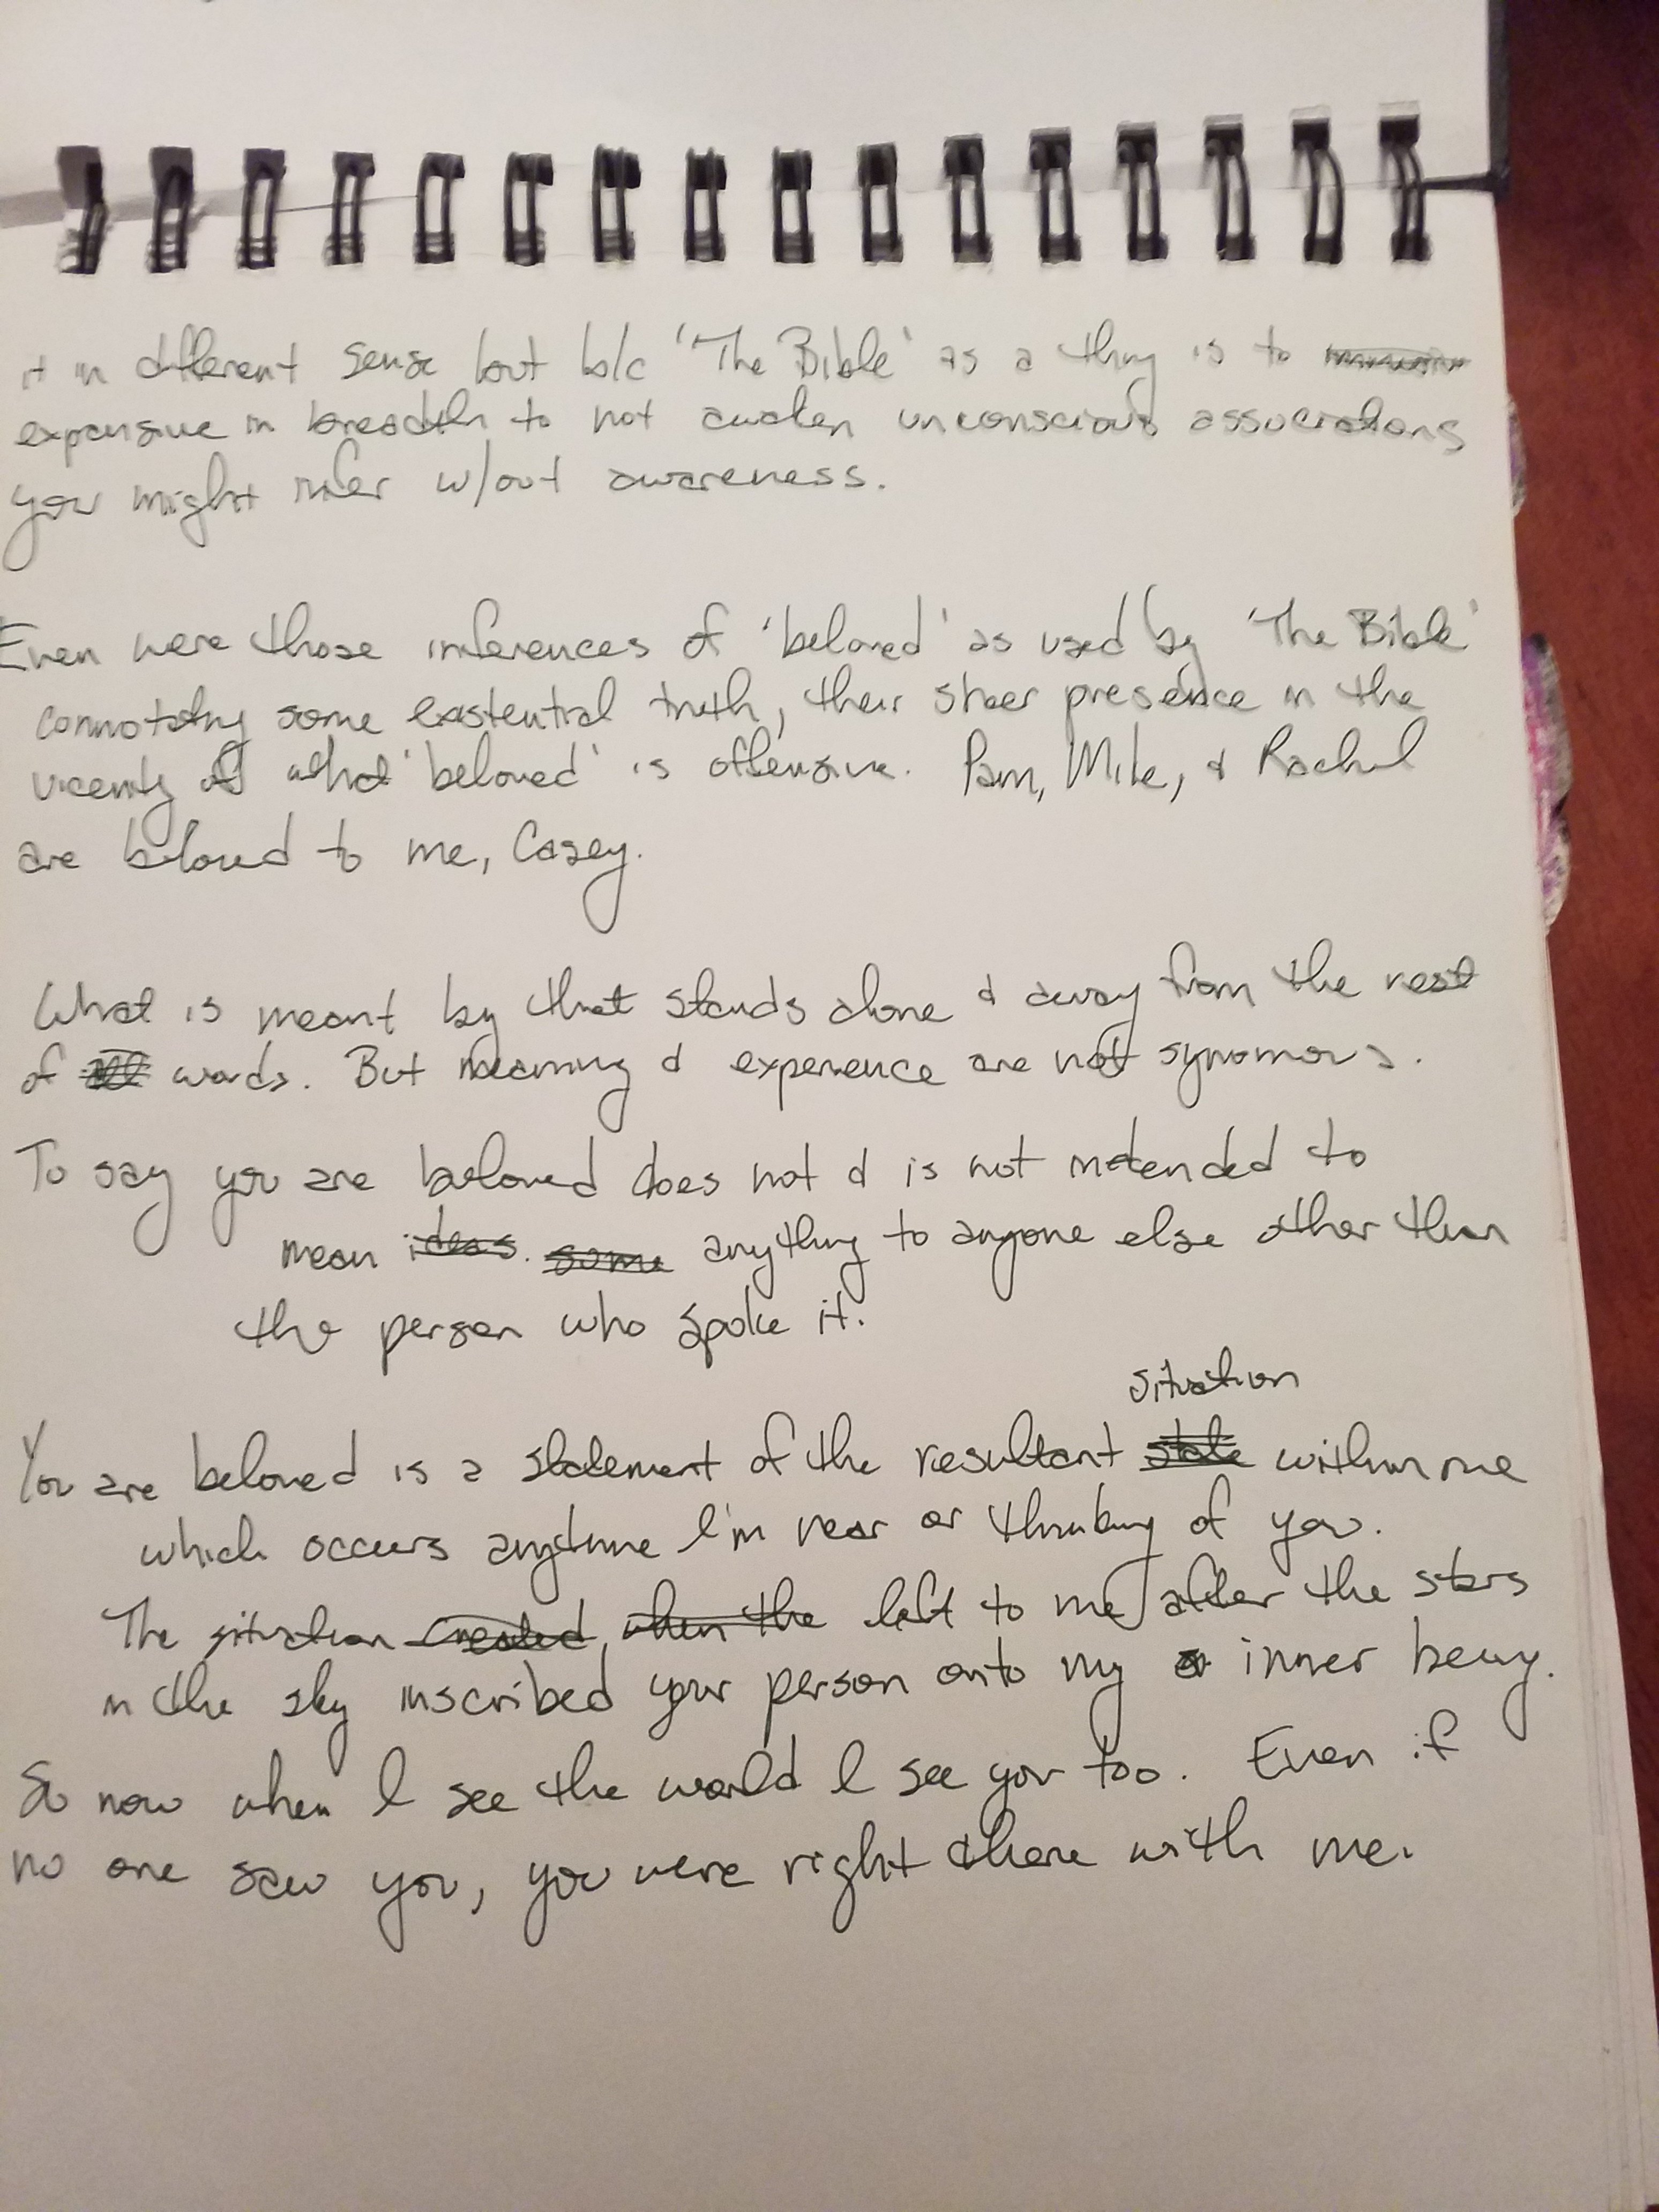 it in different sense but b/c 'The Bible' as a thing is to
expansive in breadth to not awaken unconscious associations
you might infer w/out awareness.
Even were those inferences of 'beloved' as used by 'The Bible'
connotating some existential truth, their sheer presence in the
vicenity of what 'beloved' is offensive. Pam, Mike, & Rachel
are beloved to me, Casey.
What is meant by that stands alone & away from the rest
of all words. But meaning & experience are not synomous.
To say you are beloved does not & is not intended to
mean ideas. some anything to anyone else other than
the person who spoke it.
situation
You are beloved is a statement of the resultant state within me
which occurs anytime I'm near or thinking of you.
The situation created, when the left to me after the stars
in the sky inscribed your person onto my inner being.
So now when I see the world I see you too. Even if
no one saw you, you were right there with me.